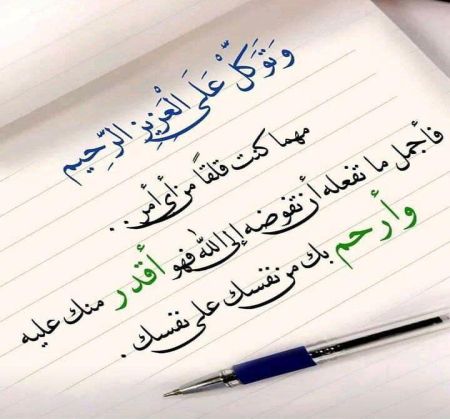 وَتَوَكَّلْ عَلَى الْعَزِيزِ الرَّحِيمِ
مهما كنت قلقاً من أي أمر..
فأجمل ما تفعله أن تفوضه إلى الله فهو أقدر منك عليه
وأرحم بك من نفسك على نفسك.